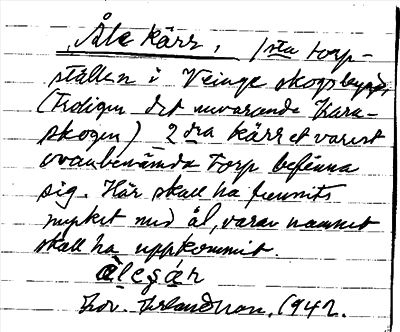 Åle kärr, 1sta torp-
ställen i Veinge skogsbygd,
(Tidigare det nuvarande Kara-
skogen) 2dra kärret varest
ovanbenämda torp befinna
sig. Här skall ha funnits
mycket med ål, varav namnet
skall ha uppkommit.
ålesǽr
1942.